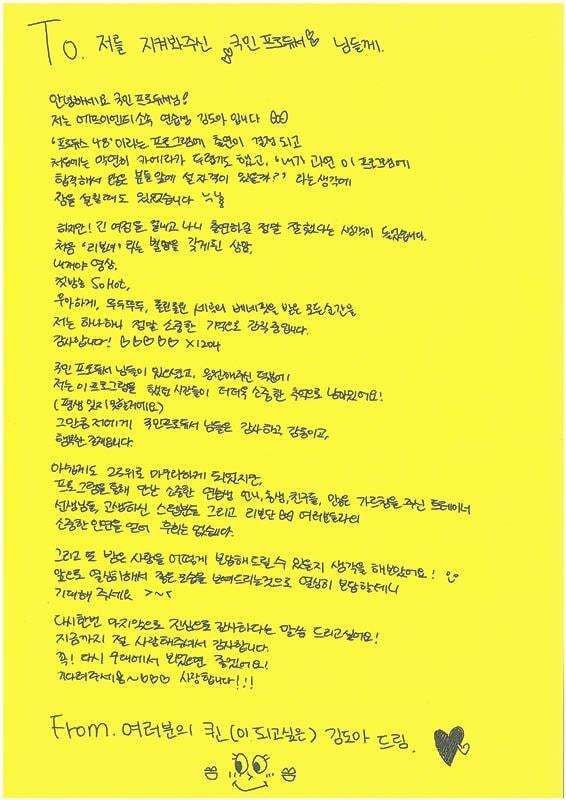 To. 저를 지켜봐주신 국민 프로듀서 님들께.
안녕하세요 국민 프로듀서님!
저는 에프이엔티 소속 연습생 김도아 입니다
'프로듀스 48' 이라는 프로그램에 출연이 결정 되고
처음에는 막연히 카메라가 두렵기도 했고, '내가 과연 이 프로그램에
합격해서 많은 분들 앞에 설 자격이 있을까?' 라는 생각에
잠을 설칠때도 있었습니다
하지만! 긴 여정을 끝내고 나니 출연하길 정말 잘했다는 생각이 들었습니다.
처음 '리본녀' 라는 별명을 갖게된 상황,
내꺼야 영상,
첫방송 So Hot,
우아하게, 뚜두뚜두, 롤린롤린 베네핏을 받은 모든순간을
저는 하나하나 정말 소중한 기억으로 간직 중입니다.
감사합니다! ♡♡♡♡♡ X1204
국민 프로듀서 님들이 있으셨고, 응원해주신 덕분에
저는 이 프로그램을 했던 시간들이 더더욱 소중한 추억으로 남아있어요!
(평생 잊지 못할거에요)
그만큼 저에게 국민프로듀서 님들은 감사하고 감동이고,
행복한 존재입니다.
아쉽게도 28위로 마무리하게 되었지만,
프로그램을 통해 만난 소중한 연습생 언니, 동생, 친구들, 많은 가르침을 주신 트레이너
선생님들, 고생하신 스텝분들 그리고 리본단 여러분들과의
소중한 인연을 얻어 후회는 없습니다.
그리고 또 받은 사랑을 어떻게 보답해드릴 수 있을지 생각을 해보았어요!
앞으로 열심히해서 좋은 모습을 보여드리는것으로 열심히 보답할테니
기대해 주세요 >~<
다시한번 마지막으로 진심으로 감사하다는 말씀 드리고싶어요!
지금까지 절 사랑해주셔서 감사합니다.
꼭! 다시 무대에서 뵈었으면 좋겠어요!
기다려주세용~♡♡♡ 사랑합니다!!!
From. 여러분의 퀸 (이 되고싶은) 김도아 드림.